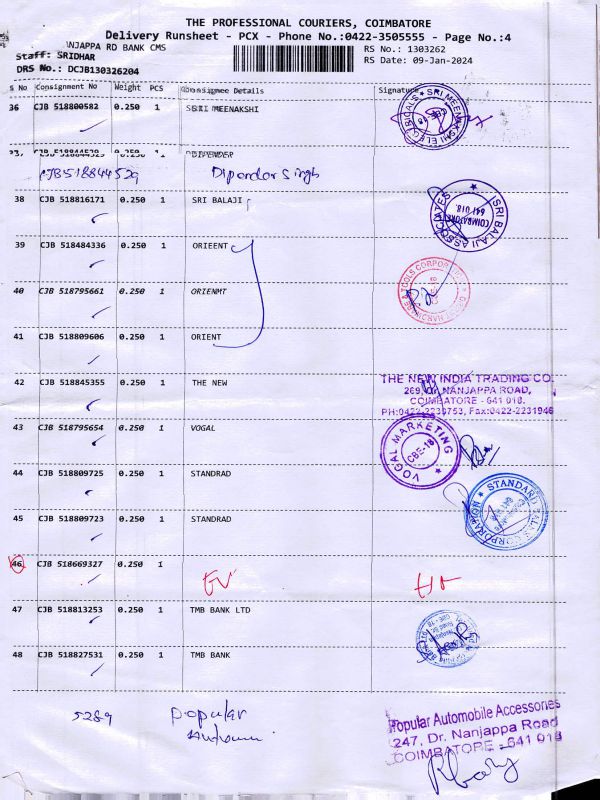 THE PROFESSIONAL COURIERS, COIMBATORE
Delivery Runsheet - PCX - Phone No.:0422-3505555 - Page No.:4
NJAPPA RD BANK CMS
RS No.: 1303262
Staff: SRIDHAR
RS Date: 09-Jan-2024
DRS No.: DCJB130326204
S No Consignment No Weight PCS Consignee Details Signature
36 CJB 518800582 0.250 1 SRI MEENAKSHI
SRI MEENAKSHI ELECTRICALS
CBE-18
CJB 518844529 0.250 1 DIPENDER
CJB518844529 Dipender Singh
38 CJB 518816171 0.250 1 SRI BALAJI
SRI BALAJI ASSOCIATES
COIMBATORE
641 018.
39 CJB 518484336 0.250 1 ORIEENT
40 CJB 518795661 0.250 1 ORIENMT
41 CJB 518809606 0.250 1 ORIENT
42 CJB 518845355 0.250 1 THE NEW
THE NEW INDIA TRADING CO.
269, Dr. NANJAPPA ROAD,
COIMBATORE - 641 018.
PH:0422-2230753, Fax:0422-2231946
43 CJB 518795654 0.250 1 VOGAL
VOGAL MARKETING
CBE-18
44 CJB 518809725 0.250 1 STANDRAD
STANDARD SALES CORPORATION
45 CJB 518809723 0.250 1 STANDRAD
46 CJB 518669327 0.250 1
47 CJB 518813253 0.250 1 TMB BANK LTD
48 CJB 518827531 0.250 1 TMB BANK
5289 popular
Popular Automobile Accessories
247, Dr. Nanjappa Road
COIMBATORE - 641 018